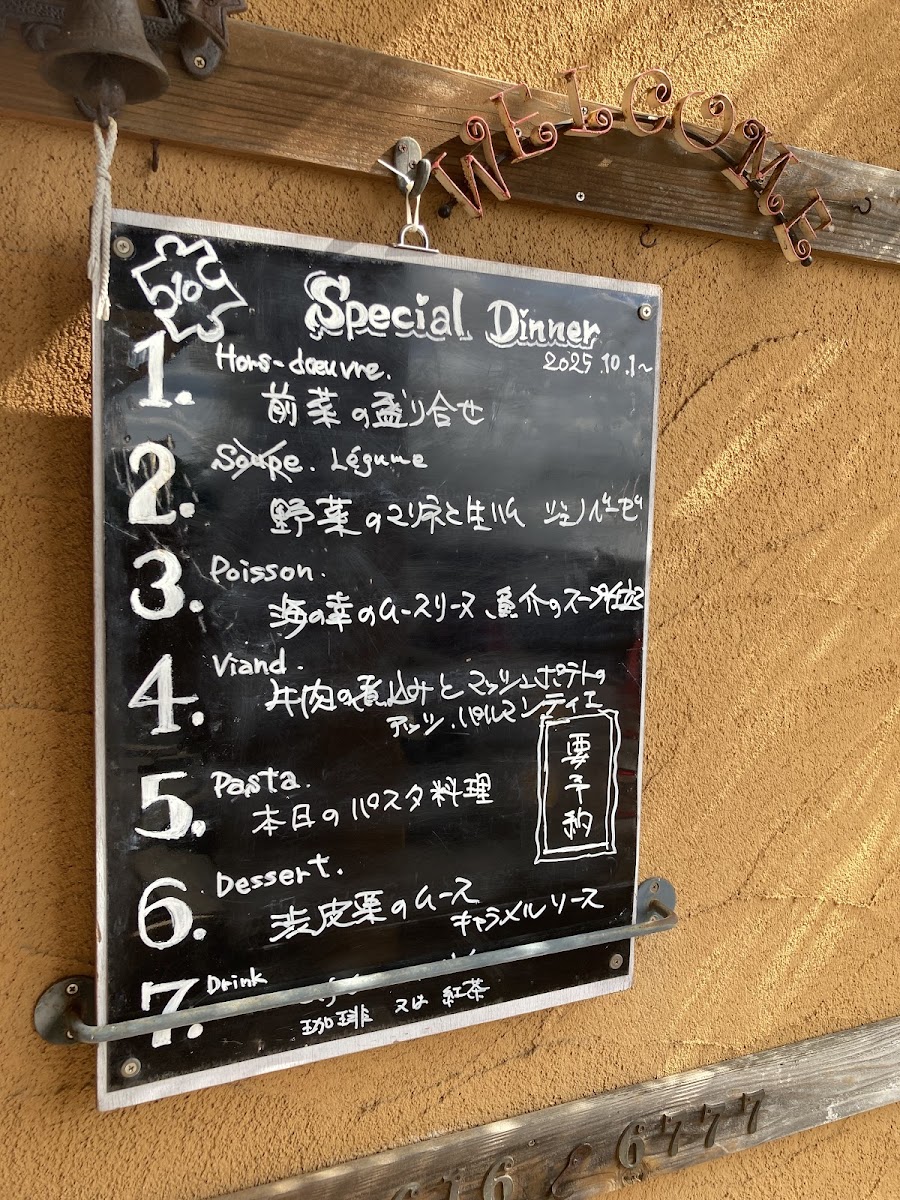 WELCOME
Special Dinner
2025.10.1~
1. Hors-dœuvre.
前菜の盛り合せ
2. Soupe. Légume
野菜のマリネと生ハム ジェノベーゼ
3. Poisson.
海の幸のムースリーヌ 魚介のスープ仕立
4. Viand.
牛肉の煮込みとマッシュポテトの
アッシ.パルマンティエ
要予約
5. Pasta.
本日のパスタ料理
6. Dessert.
渋皮栗のムース
キャラメルソース
7. Drink
珈琲 又は 紅茶
6777